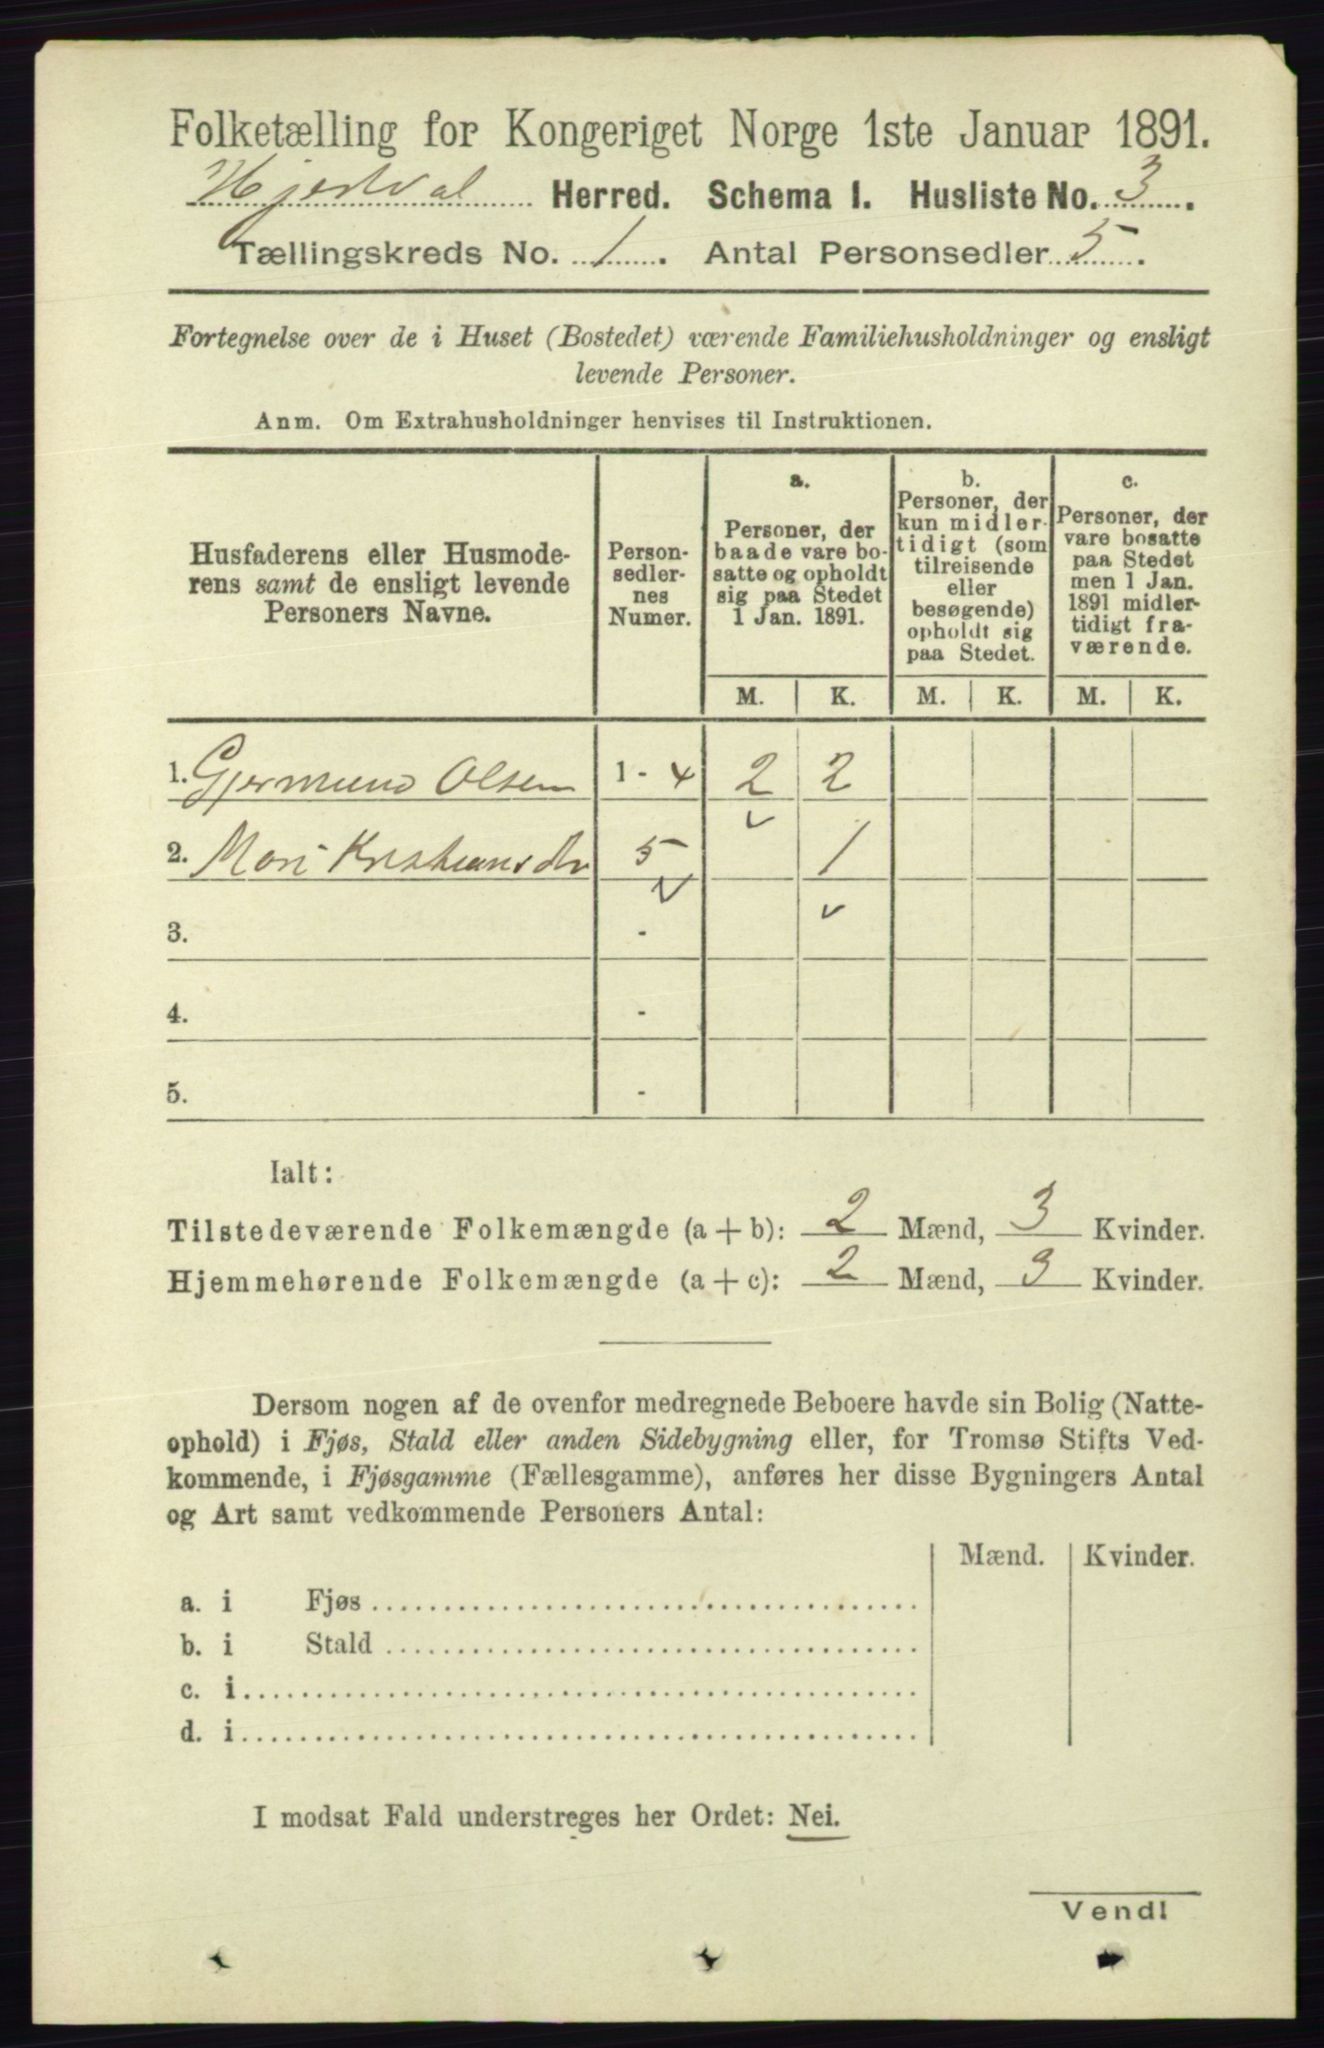 Folketælling for Kongeriget Norge 1ste Januar 1891.
Hjertdal Herred. Schema I. Husliste No. 3.
Tællingskreds No. 1. Antal Personsedler 5.
Fortegnelse over de i Huset (Bostedet) værende Familiehusholdninger og ensligt
levende Personer.
Anm. Om Extrahusholdninger henvises til Instruktionen.
Husfaderens eller Husmode-
rens samt de ensligt levende
Personers Navne.
Person-
sedler-
nes
Numer.
a.
Personer, der
baade vare bo-
satte og opholdt
sig paa Stedet
1 Jan. 1891.
b.
Personer, der
kun midler-
tidigt (som
tilreisende
eller
besøgende)
opholdt sig
paa Stedet.
c.
Personer, der
vare bosatte
paa Stedet
men 1 Jan.
1891 midler-
tidigt fra-
værende.
M. K. M. K. M. K.
1. Gjermund Olsen 1 - 4 2 2
2. Mari Kristiansdtr 5 1
3. -
4. -
5. -
Ialt:
Tilstedeværende Folkemængde (a + b): 2 Mænd, 3 Kvinder.
Hjemmehørende Folkemængde (a + c): 2 Mænd, 3 Kvinder.
Dersom nogen af de ovenfor medregnede Beboere havde sin Bolig (Natte-
ophold) i Fjøs, Stald eller anden Sidebygning eller, for Tromsø Stifts Ved-
kommende, i Fjøsgamme (Fællesgamme), anføres her disse Bygningers Antal
og Art samt vedkommende Personers Antal:
Mænd. Kvinder.
a. i Fjøs
b. i Stald
c. i
d. i
I modsat Fald understreges her Ordet: Nei.
Vend!